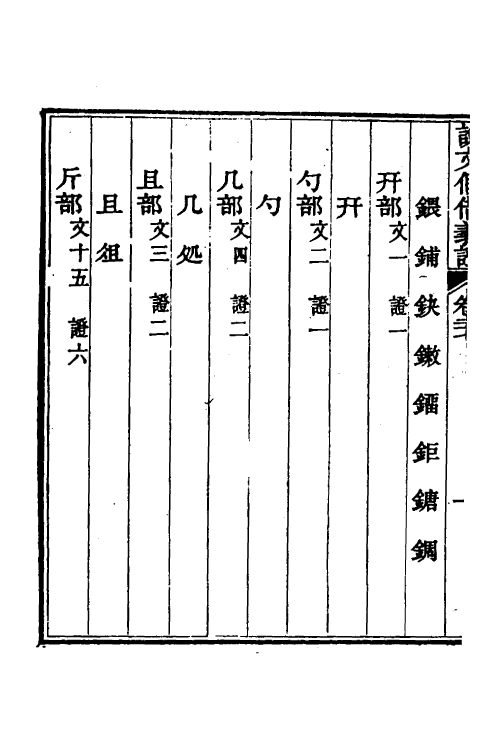 鍡 鋪 鈌 鏉 鎦 鉅 鎕 錭
幵部 文一 證一
幵
勺部 文二 證一
勺
几部 文四 證二
几 処
且部 文三 證二
且 俎
斤部 文十五 證六
說文假借義證
卷二十七
一